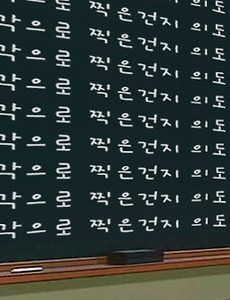 찍은건지 의도
각으로 찍은건지 의도
각으로 찍은건지 의도
각으로 찍은건지 의도
각으로 찍은건지 의도
각으로 찍은건지 의도
각으로 찍은건지 의도
각으로 찍은건지 의도
각으로 찍은건지 의도